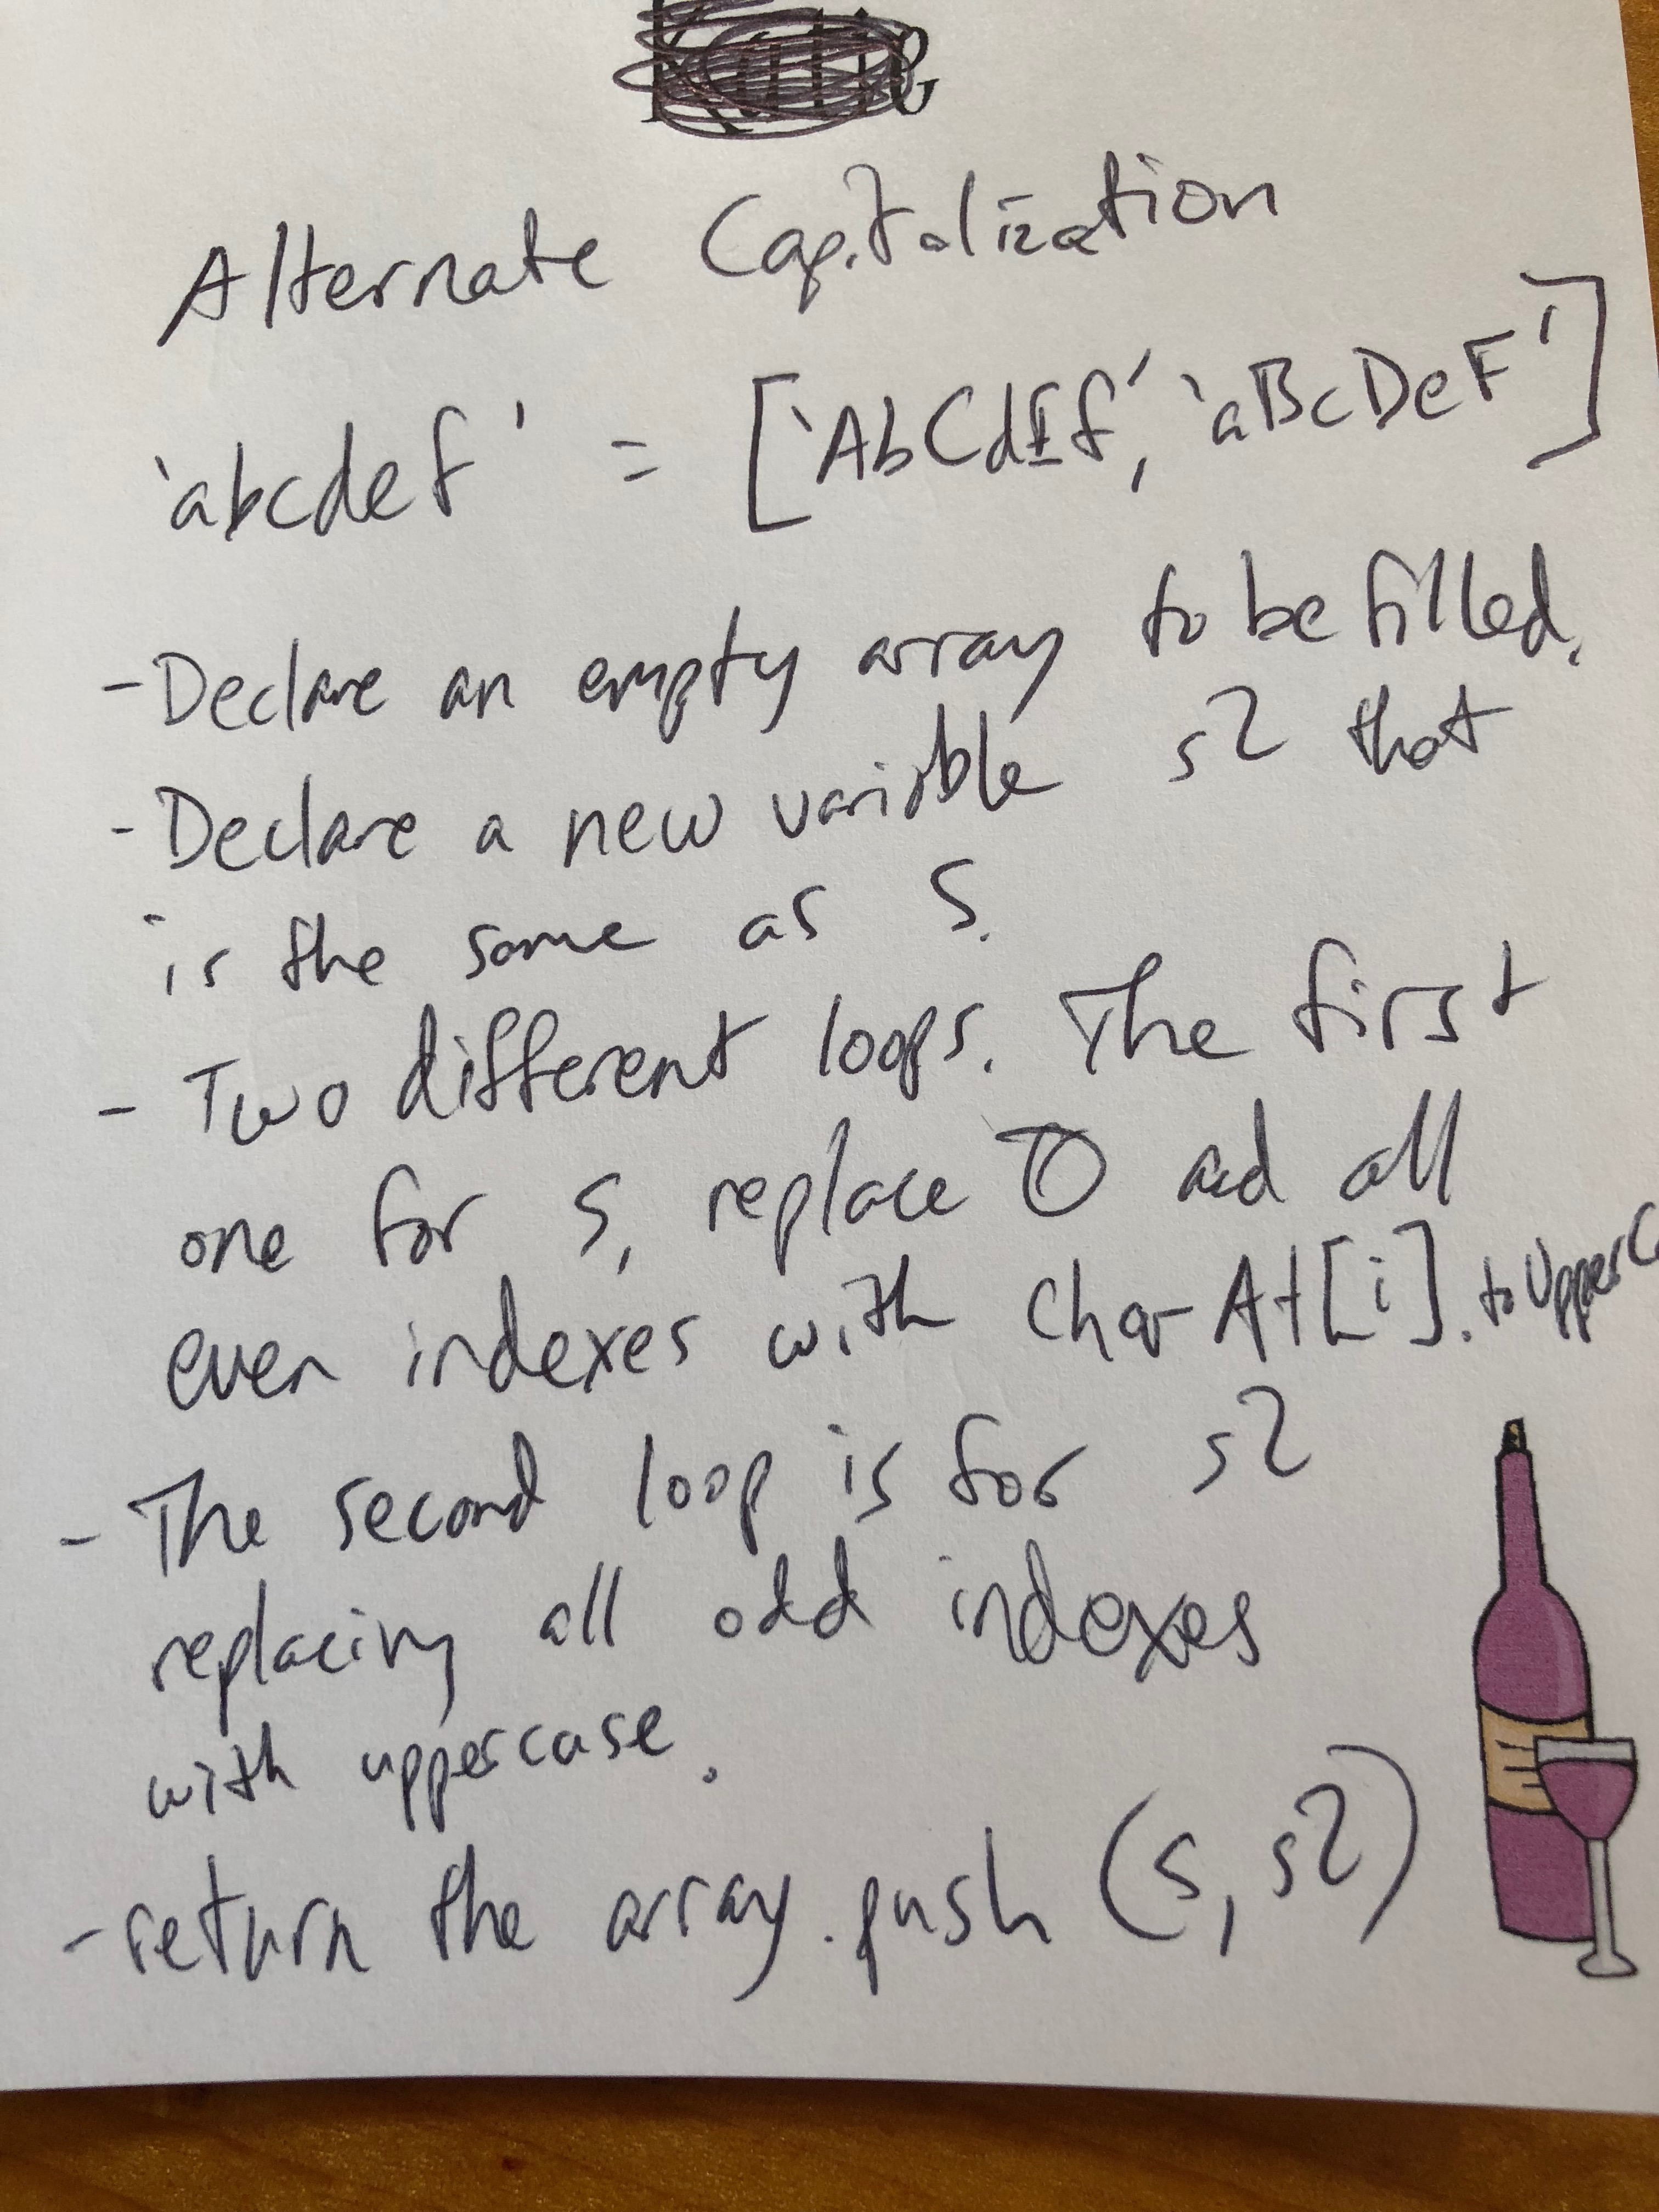 Alternate Capitalization
'abcdef' = ['AbCdEf', 'aBcDeF']
- Declare an empty array to be filled.
- Declare a new variable s2 that
is the same as s.
- Two different loops. The first
one for s, replace 0 and all
even indexes with charAt[i].toUpperC
- The second loop is for s2
replacing all odd indexes
with uppercase.
- return the array.push (s, s2)